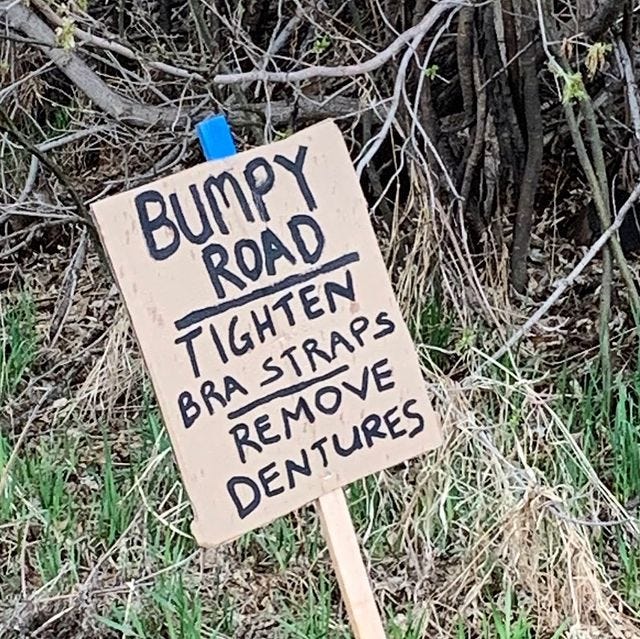 BUMPY
ROAD
TIGHTEN
BRA STRAPS
REMOVE
DENTURES